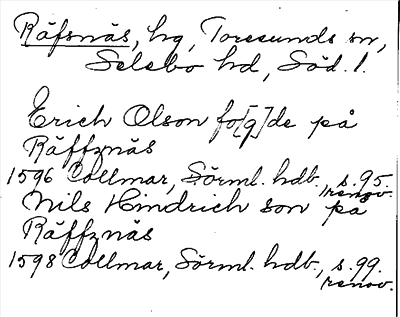 Räfsnäs, hg, Toresunds sn,
Selebo hd, Söd. l.
Erich Olson fo[g]de på
Räffznäs
1596 Collmar, Sörml. hdb. s. 95.
renov.
Nils Hindrich son på
Räffznäs
1598 Collmar, Sörml. hdb., s. 99.
renov.